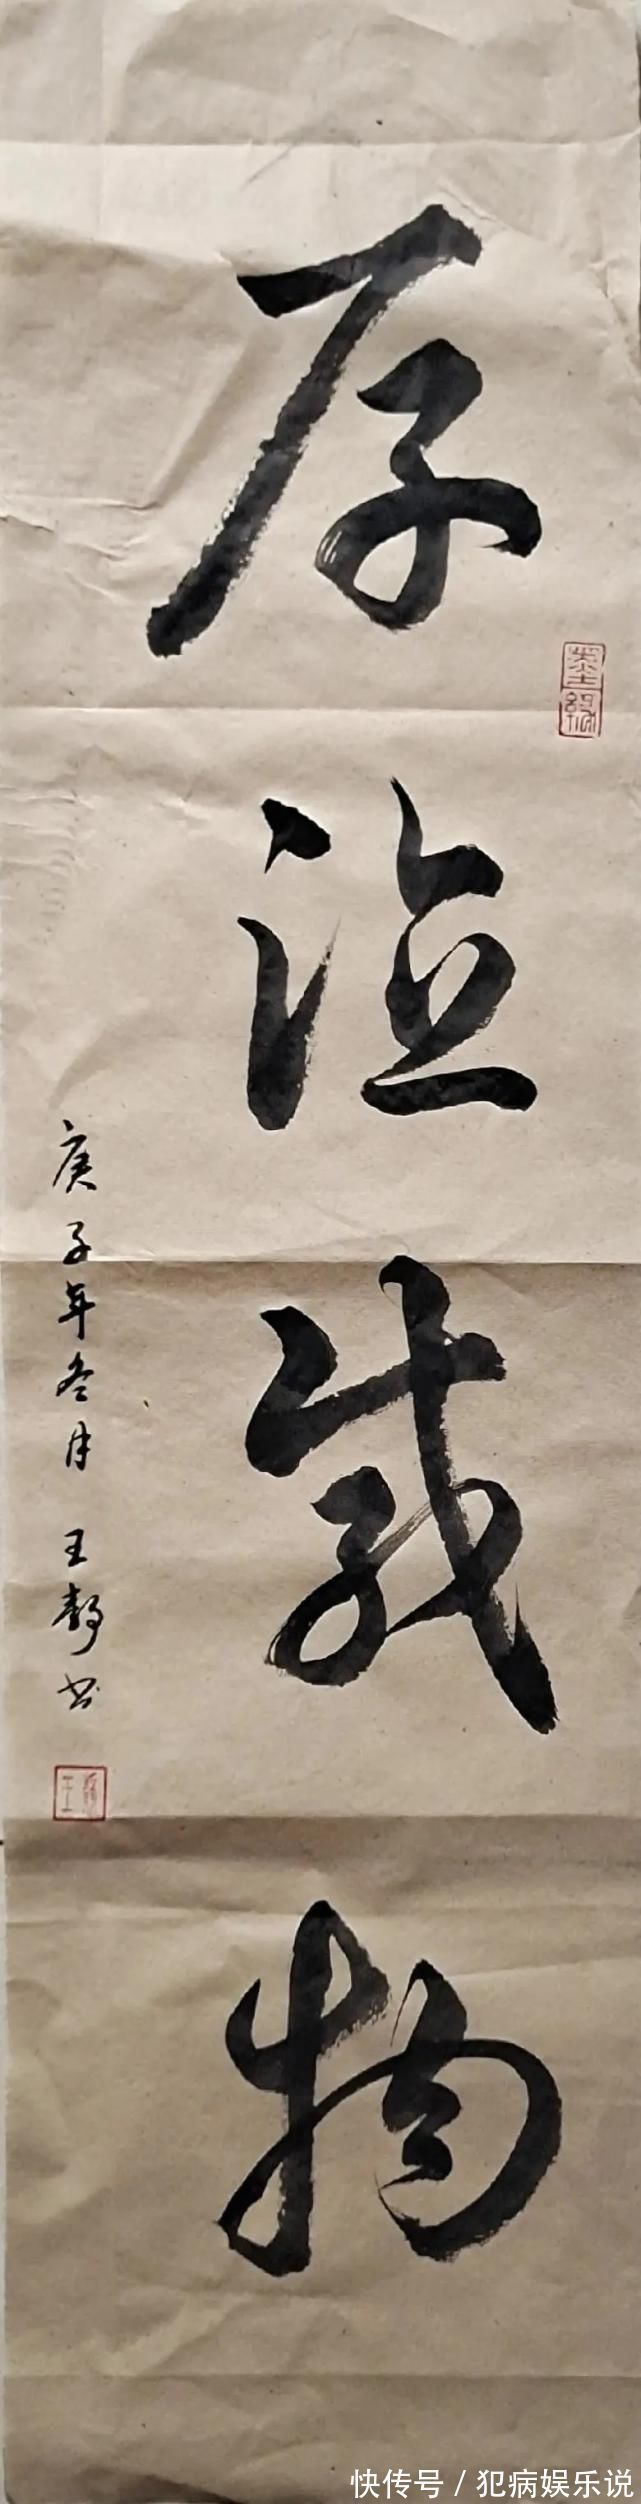 厚德载物
墨缘
庚子年冬月 王静书
快传号 / 犯病娱乐说